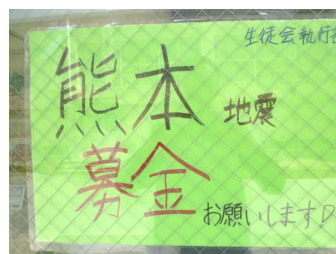 生徒会執行
熊本 地震
募金 お願いします